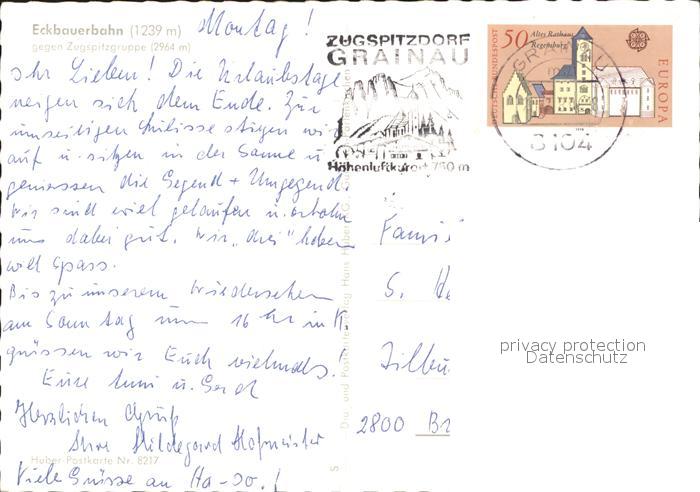 Eckbauerbahn (1239 m)
gegen Zugspitzgruppe (2964 m)
Montag!
Ihr Lieben! Die Urlaubstage
neigen sich dem Ende. Zur
umseitigen stiegen wir
auf u. sitzen in der Sonne u.
geniessen die Gegend + Umgegend.
Wir sind viel gelaufen u. erholen
uns dabei gut. Wir "drei" haben
viel Spass.
Bis zu unserem Wiedersehen
am Sonntag um 16 Uhr in K
grüssen wir Euch vielmals!
Eure u. Gerd
Herzlichen Gruß
Ihre Hildegard Hofmeister
Huber-Postkarte Nr. 8217
Viele Grüsse an Ha-Jo!
ZUGSPITZDORF
GRAINAU
Höhenluftkurort 750 m
DEUTSCHE BUNDESPOST
50
Altes Rathaus
Regensburg
EUROPA
GRAINAU
8104
Dia und Postkartenverlag Hans Huber
S
Fami
S. He
2800
privacy protection
Datenschutz